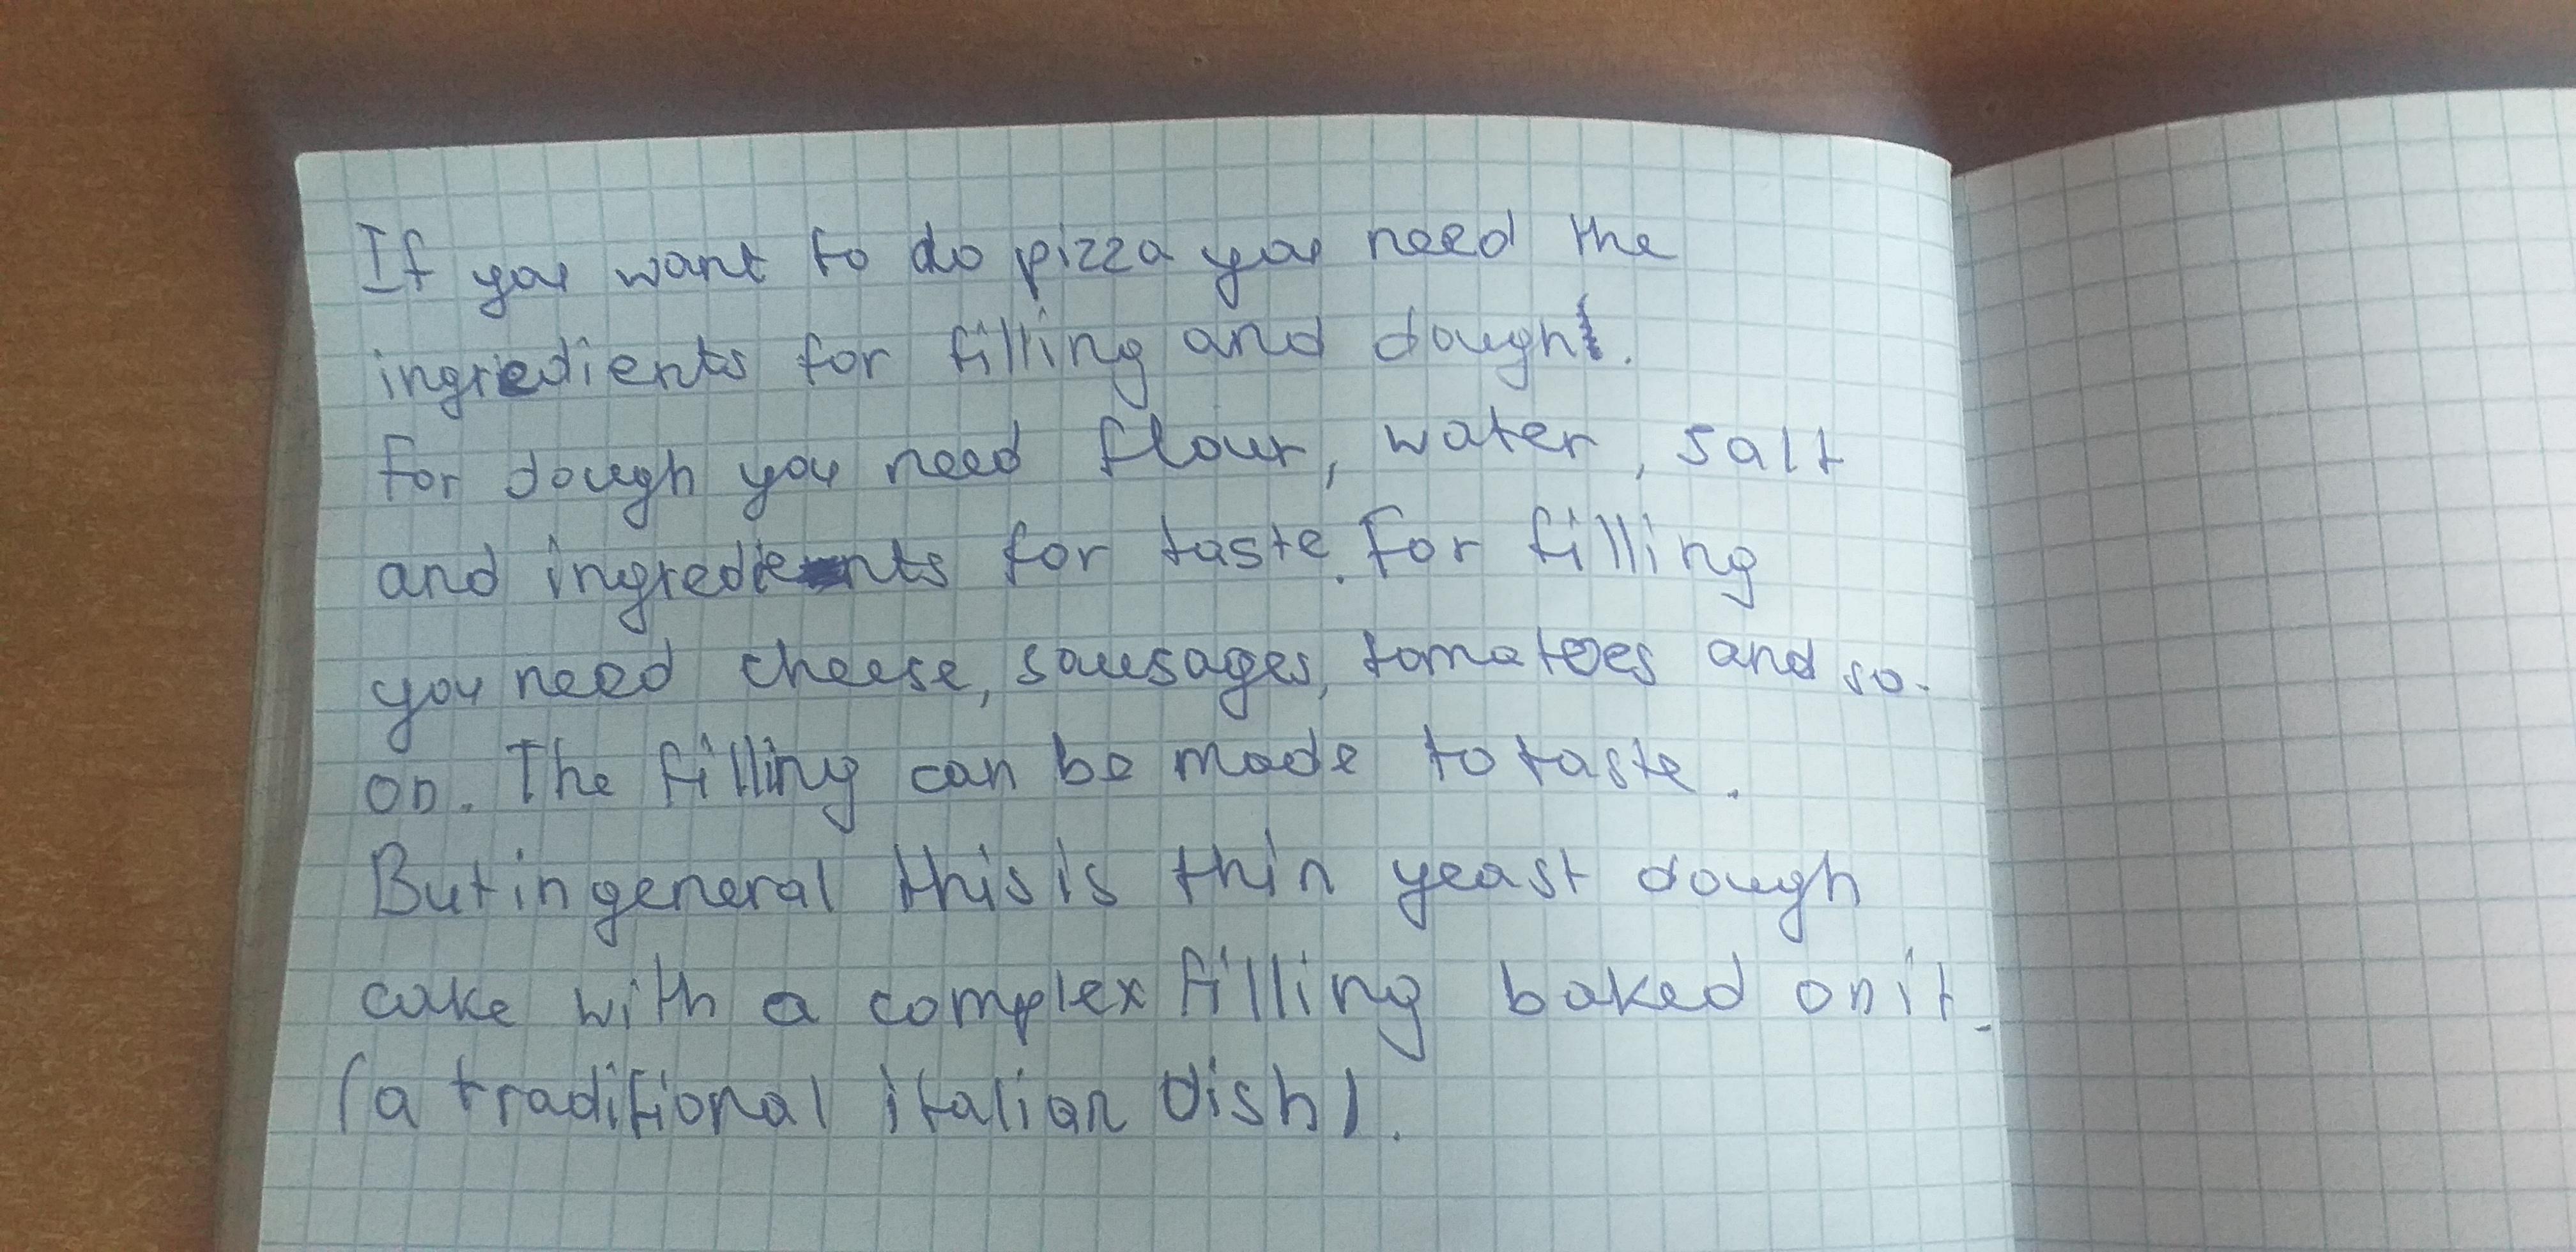 If you want to do pizza you need the
ingredients for filling and dough.
For dough you need flour, water, salt
and ingredients for taste. For filling
you need cheese, sausages, tomatoes and so-
on. The filling can be made to taste.
But in general this is thin yeast dough
cake with a complex filling baked on it.
(a traditional italian dish).